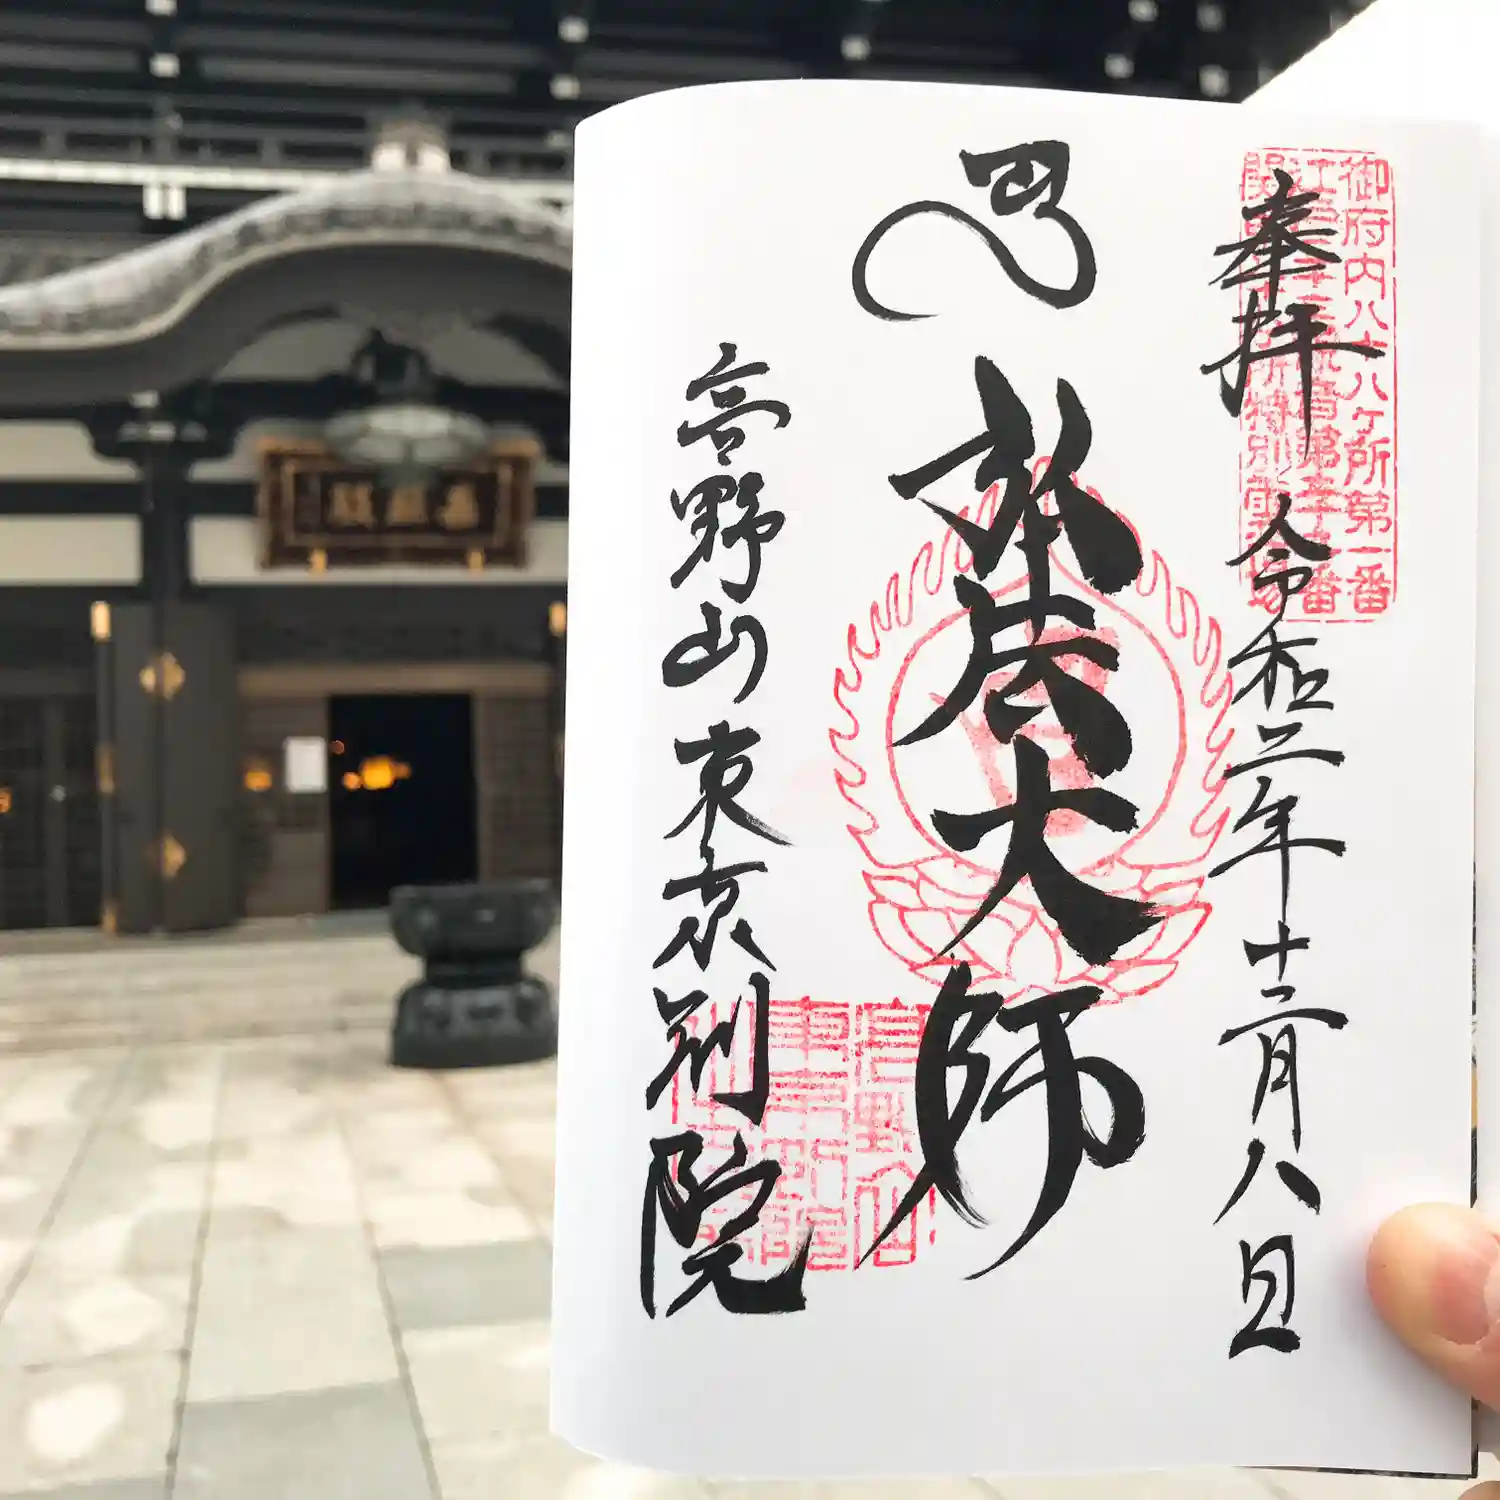 奉拝
令和二年十二月八日
弘法大師
高野山東京別院
御府内八十八ヶ所第一番
高野山
東京別院
遍照殿